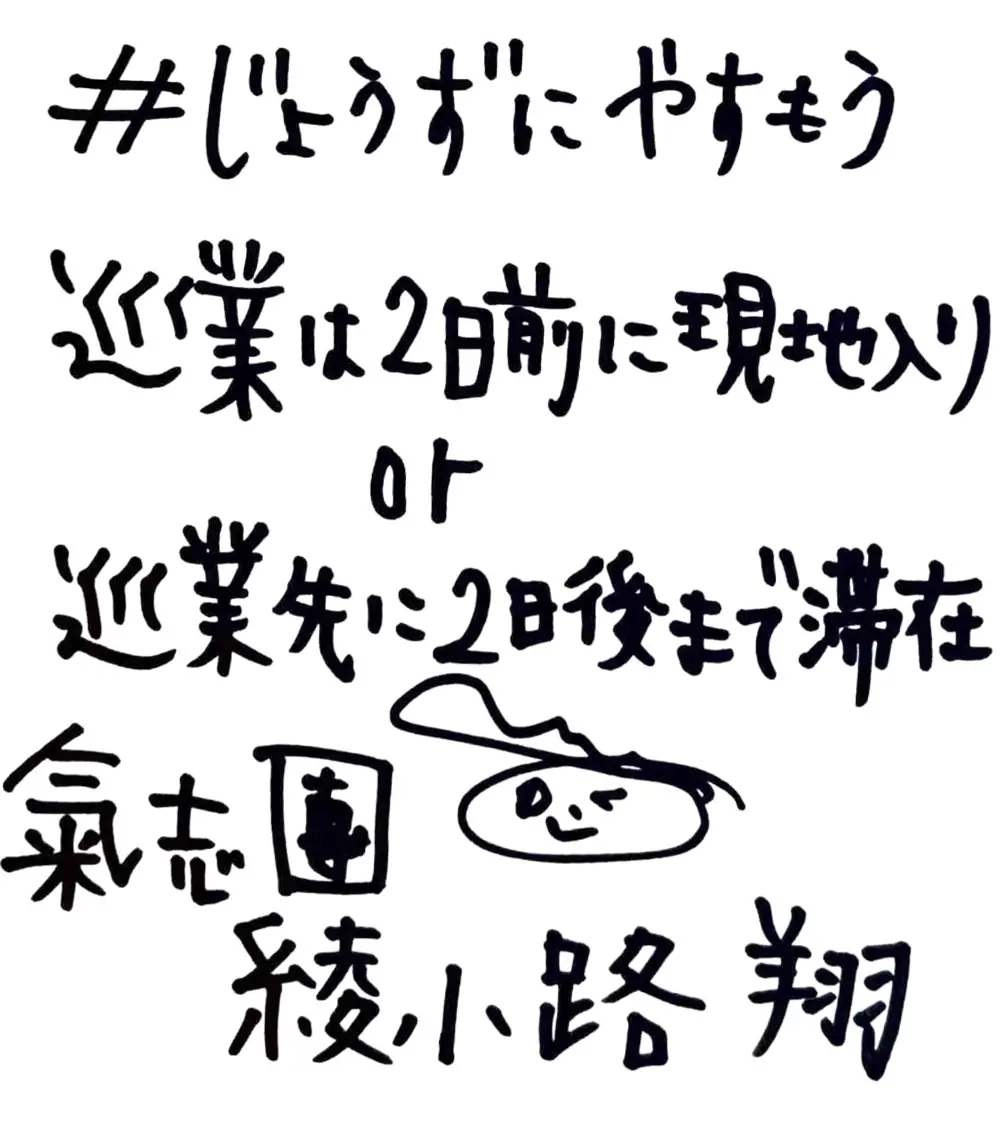 #じょうずにやすもう
巡業は2日前に現地入り
or
巡業先に2日後まで滞在
氣志團
綾小路 翔